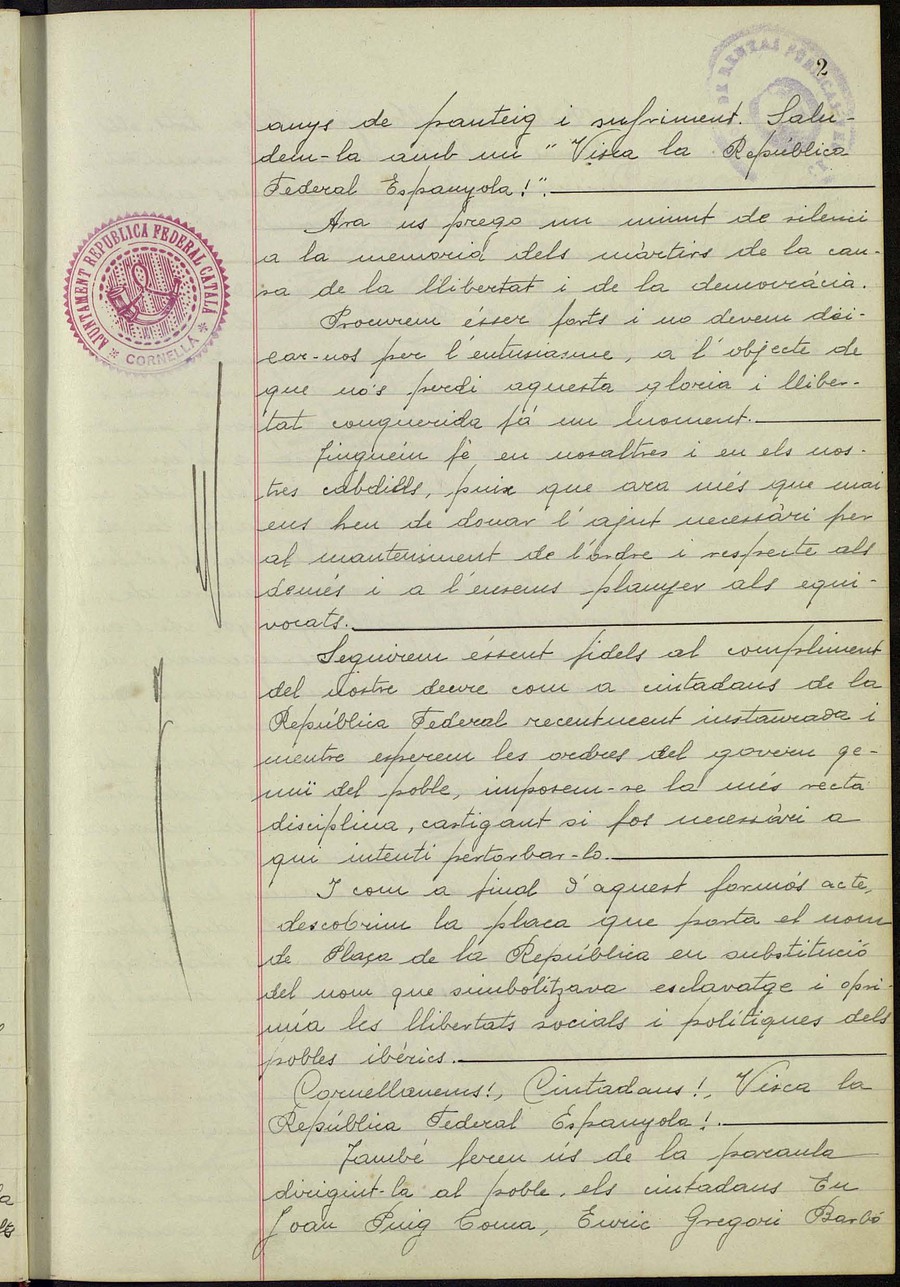 2
DE RENTAS PÚBLICAS
anys de panteig i sufriment. Salu-
dem-la amb un " Visca la República
Federal Espanyola!".
Ara us prego un minut de silenci
a la memoria dels màrtirs de la cau-
sa de la llibertat i de la democràcia.
Procurem ésser forts i no devem dei-
xar-nos per l'entusiasme, a l'objecte de
que no's perdi aquesta gloria i lliber-
tat conquerida fá un moment.
Tinguem fè en nosaltres i en els nos-
tres cabdills, puix que ara més que mai
ens heu de donar l'ajut necessàri per
al manteniment de l'ordre i respecte als
demés i a l'ensems planyer als equi-
vocats.
Seguirem éssent fidels al compliment
del nostre deure com a ciutadans de la
República Federal recentment instaurada i
mentre esperem les ordres del govern ge-
nuï del poble, imposem-se la més recta
disciplina, castigant si fos necessàri a
qui intenti pertorbar-lo.
I com a final d'aquest formós acte,
descobrim la placa que porta el nom
de Plaça de la República en substitució
del nom que simbólitzava esclavatge i opri-
mía les llibertats socials i polítiques dels
pobles ibérics.
Cornellanencs!, Ciutadans!, Visca la
República Federal Espanyola!.
També feren ús de la paraula
dirigint-la al poble, els ciutadans En
Joan Puig Coma, Enric Gregori Barbó
AJUNTAMENT REPUBLICA FEDERAL CATALÀ
* CORNELLÀ *